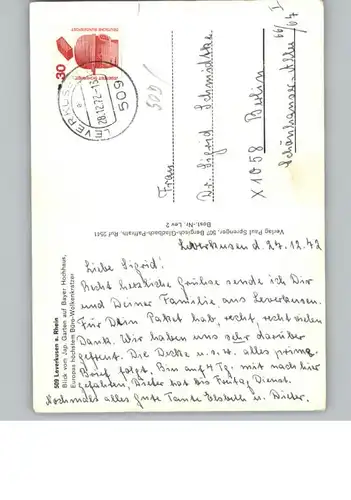 30
DEUTSCHE BUNDESPOST
LEVERKUSEN
28.12.72-15
509
509
Frau
Dr. Sigrid Schmidtke
X 1058 Berlin
Schönhauser-Allee 66/67
I.
Verlag Paul Sprenger, 507 Bergisch-Gladbach-Paffrath, Ruf 2501
Best.-Nr. Lev 2
509 Leverkusen a. Rhein
Blick vom Jap. Garten auf Bayer Hochhaus,
Europas höchstem Büro-Wolkenkratzer
Leverkusen d. 27.12.72
Liebe Sigrid!
Recht herzliche Grüße sende ich Dir
und Deiner Familie aus Leverkusen.
Für Dein Paket hab, recht, recht vielen
Dank. Wir haben uns sehr darüber
gefreut. Die Decke u.s.w. alles prima.
Brief folgt. Bin auf 4 Tg. mit nach hier
gefahren, Dieter hat bis Freitag Dienst.
Nochmals alles Gute Tante Elsbeth u. Dieter.